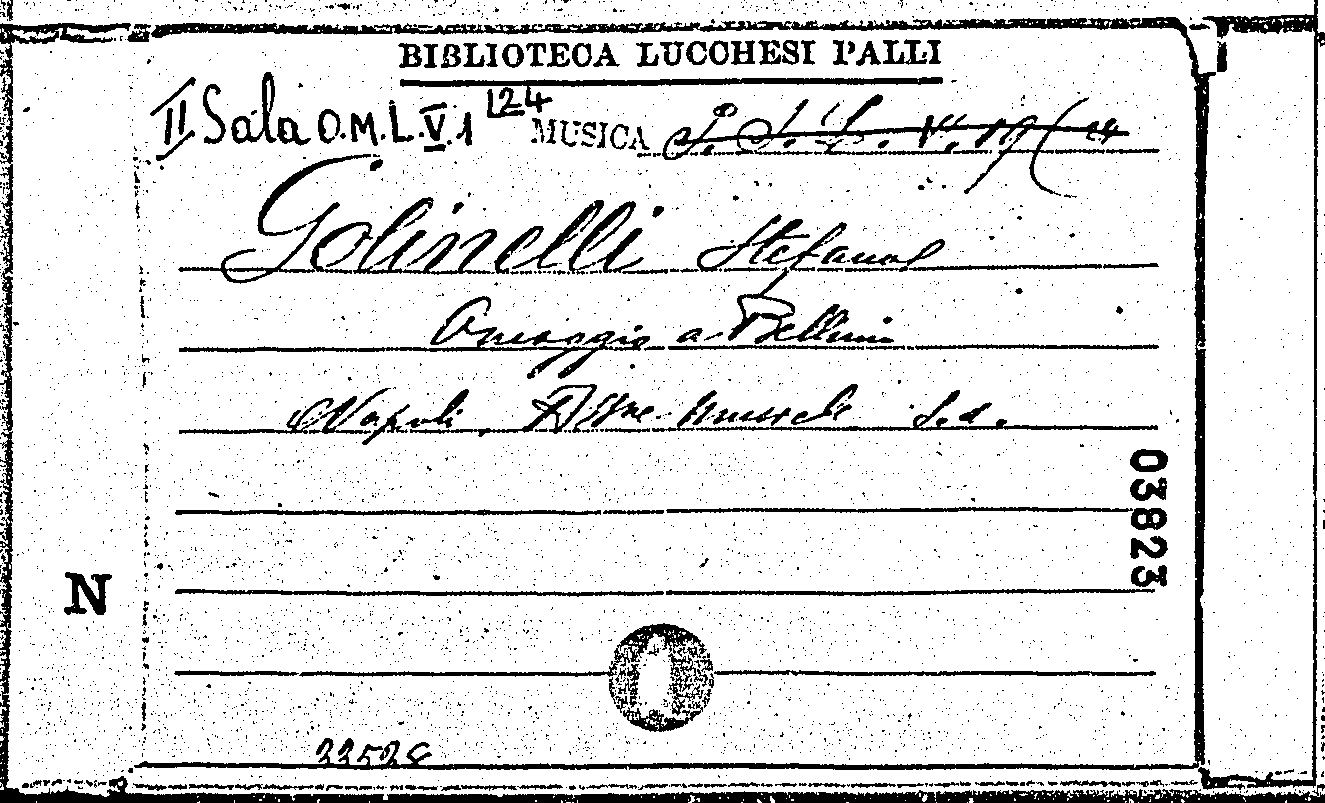 BIBLIOTECA LUCCHESI PALLI
II Sala O.M.L.V.1 124 MUSICA
Golinelli Stefano
Omaggio a Bellini
Napoli, s.d.
03823
N
33528